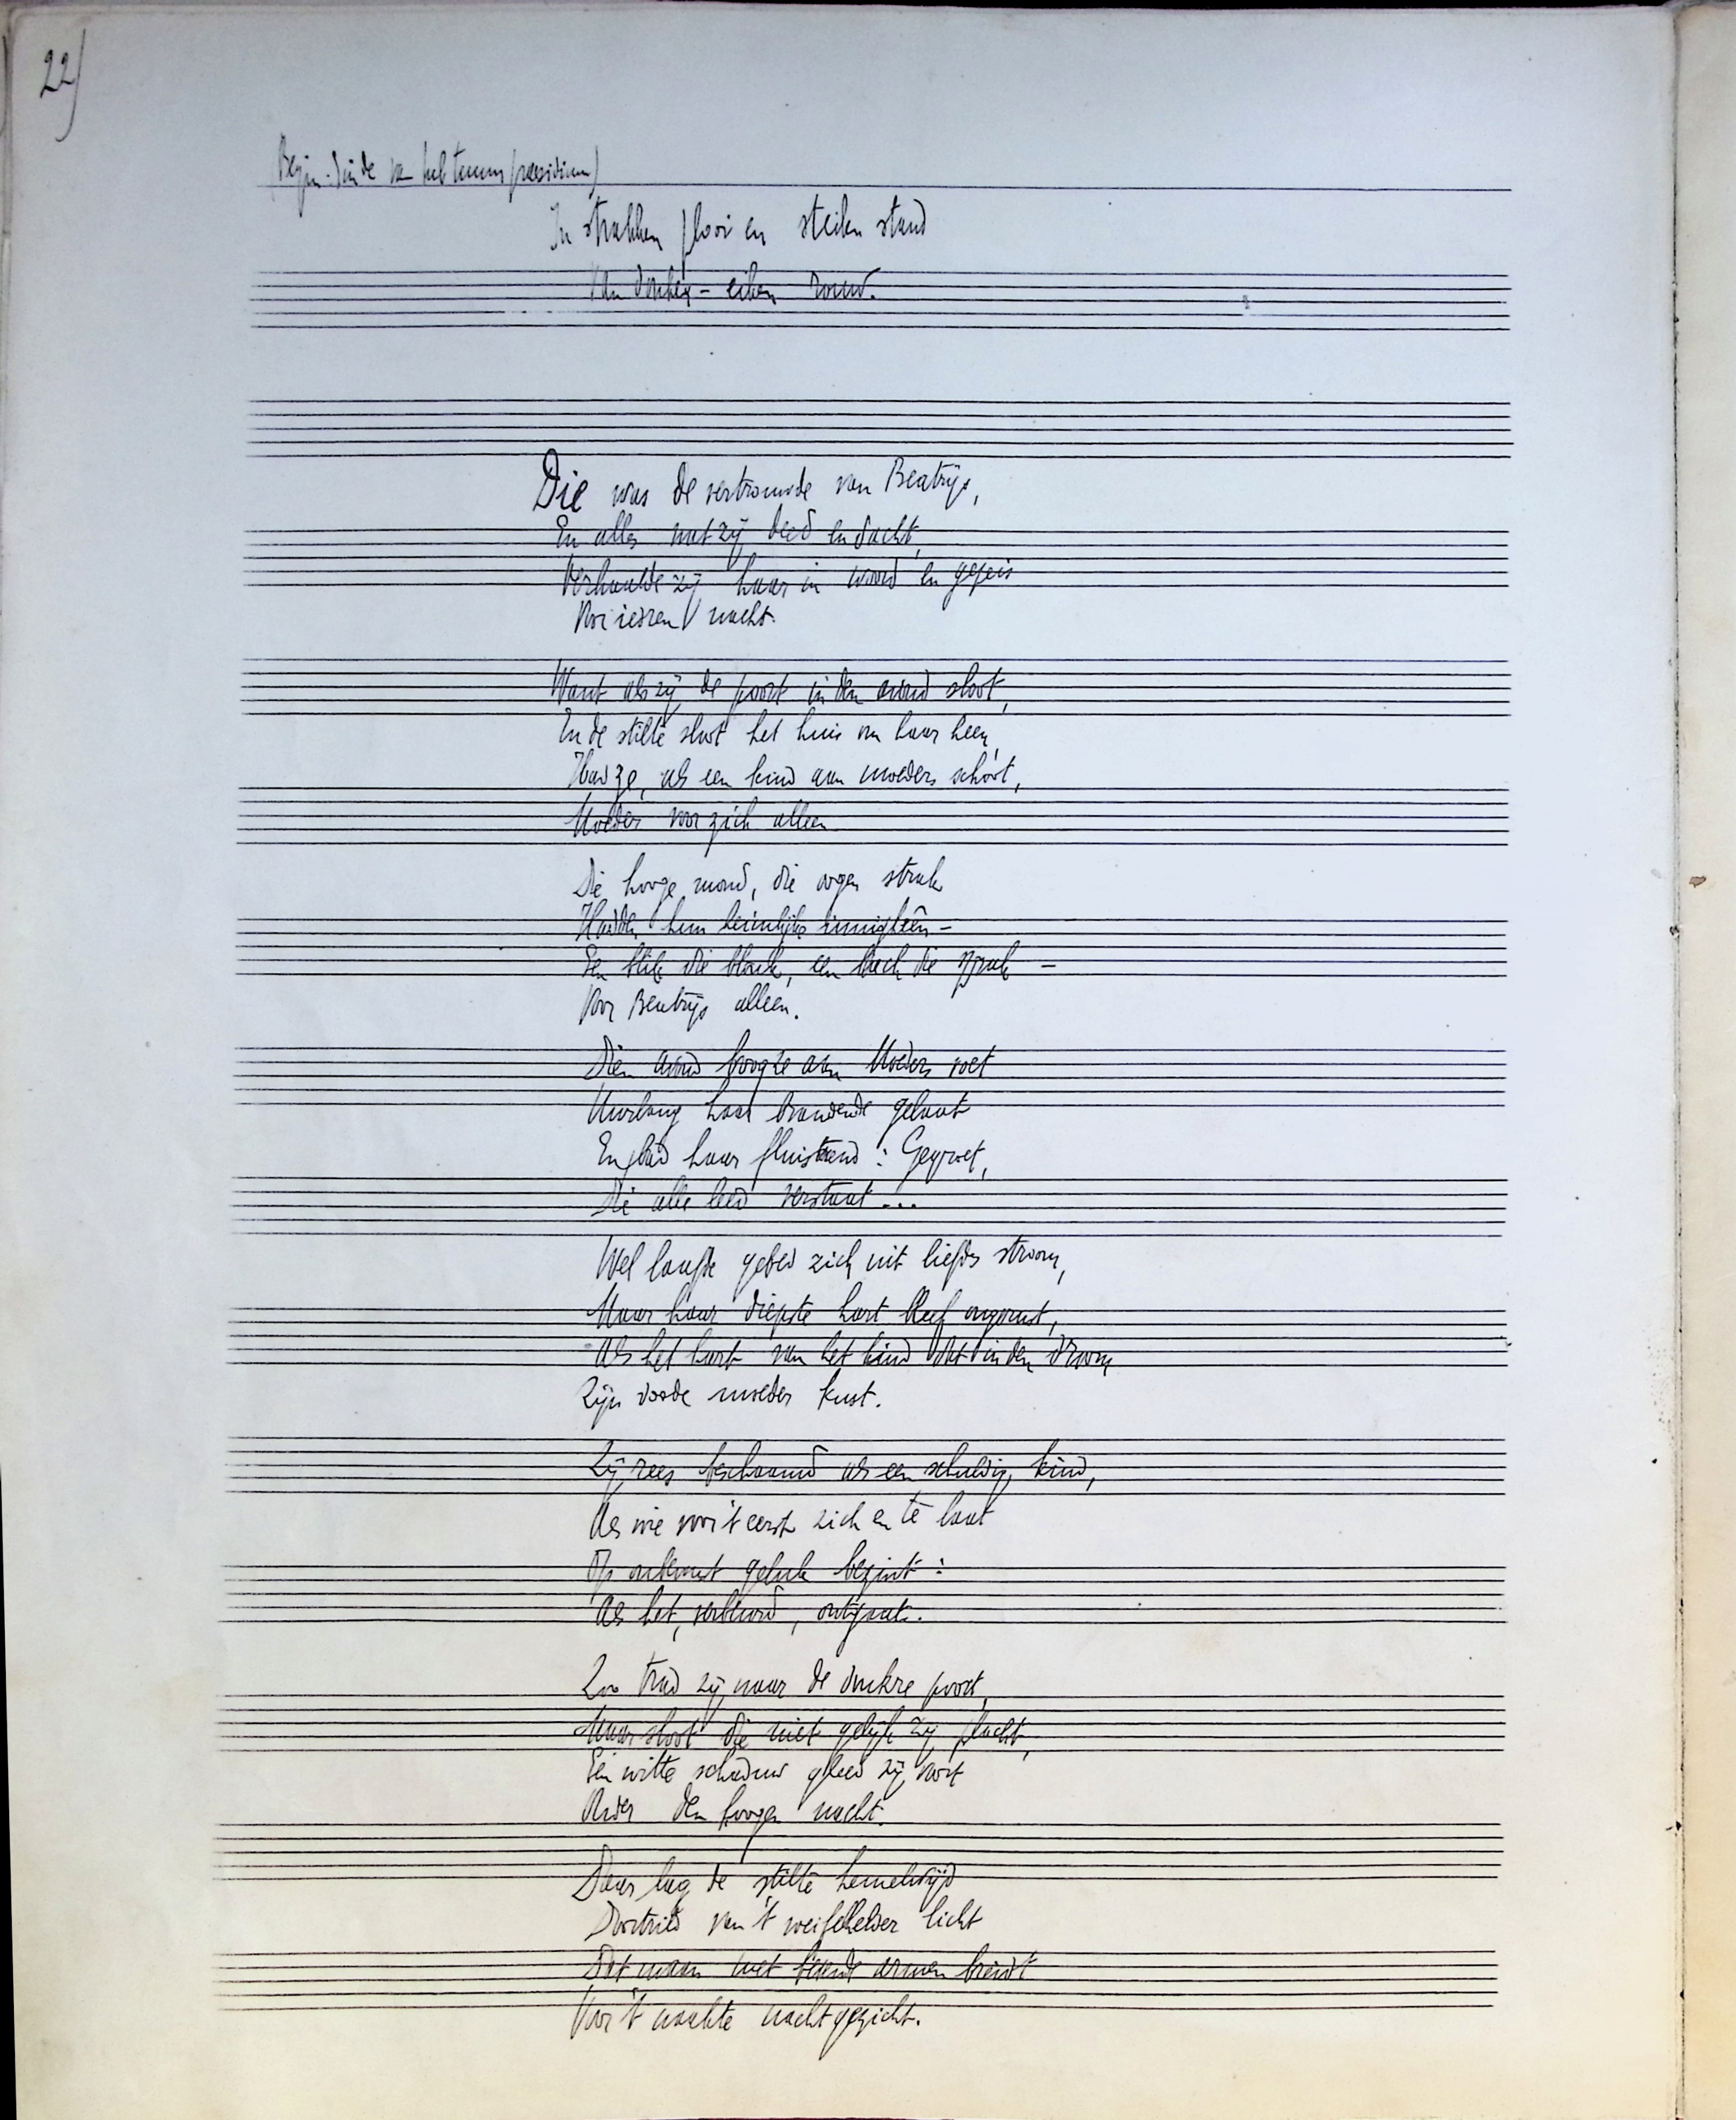 22)
(Begin: Einde van Sub tuum praesidium)
In strakken plooi en steilen stand
Van donker-eiken rouw.
Die was de vertrouwde van Beatrijs,
En alles wat zij deed en dacht,
Verhaalde zij haar in woord en gepeis
Voor iedren nacht.
Want als zij de poort in den avond sloot,
En de stilte sloot het huis om haar heen,
Had ze, als een kind aan moeders schoot,
Moeder voor zich alleen
Die hooge mond, die oogen strak
Hadden hun heimlijke innigheên –
Een blik die blonk, een lach die sprak –
Voor Beatrijs alleen.
Dien avond boog ze aan Moeders voet
Uurlang haar brandende gelaat
En bad haar fluisterend: Gegroet,
Die alle leed verstaat...
Wel laafde gebed zich uit liefdes stroom,
Maar haar diepste hart bleef ongerust,
Als het hart van het kind dat in den droom
Zijn doode moeder kust.
Zij rees beschaamd als een schuldig kind,
Als wie voor 't eerst zich en te laat
Op onbewust geluk bezint:
Als het, verbeurd, ontgaat.
Zoo trad zij naar de donkre poort,
Maar sloot die niet gelijk zij placht,
Een witte schaduw gleed zij voort
Onder den hoogen nacht.
Daar lag de stilte hemelwijd
Doortrild van 't weifelhelder licht
Dat maan met bleeke armen breidt
Voor 't naakte nachtgezicht.